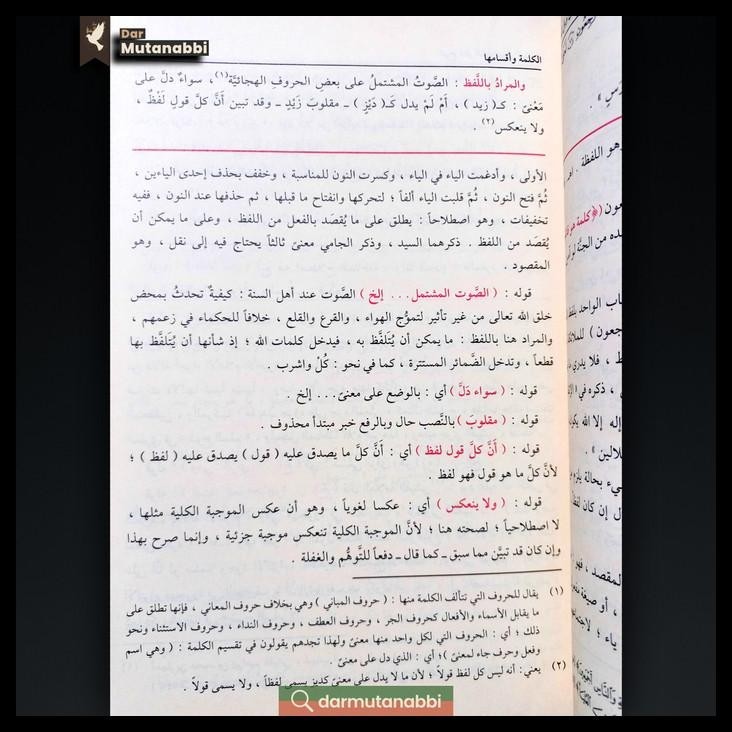 Dar
Mutanabbi
الكلمة وأقسامها
والمرادُ باللَّفظ : الصَّوتُ المشتملُ على بعضِ الحروفِ الهجائيَّة(١) ، سواءٌ دلَّ على
مَعْنىً : كـ( زيد ) ، أمْ لَمْ يدل كَـ( دَيْزٍ ) ـ مقلوبَ زَيْدٍ ـ وقد تبين أنَّ كلَّ قولٍ لَفْظٌ ،
ولا ينعكس(٢) .
الأولى ، وأدغمت الياء في الياء ، وكسرت النون للمناسبة ، وخفف بحذف إحدى الياءين ،
ثُمَّ فتح النون ، ثُمَّ قلبت الياء ألفاً ؛ لتحركها وانفتاح ما قبلها ، ثم حذفها عند النون ، ففيه
تخفيفات ، وهو اصطلاحاً : يطلق على ما يُقصَد بالفعل من اللفظ ، وعلى ما يمكن أن
يُقصَد من اللفظ . ذكرهما السيد ، وذكر الجامي معنىً ثالثاً يحتاج فيه إلى نقل ، وهو
المقصود .
قوله : ( الصَّوت المشتمل . . . إلخ ) الصَّوت عند أهل السنة : كيفيةٌ تحدثُ بمحض
خلق الله تعالى من غير تأثير لتموُّج الهواء ، والقرع والقلع ، خلافاً للحكماء في زعمهم ،
والمراد هنا باللفظ : ما يمكن أن يُتَلفَّظ به ، فيدخل كلمات الله ؛ إذ شأنها أن يُتَلفَّظ بها
قطعاً ، وتدخل الضَّمائر المستترة ، كما في نحو : كُلْ واشرب .
قوله : ( سواء دَلَّ ) أي : بالوضع على معنىً . . . إلخ .
قوله : ( مقلوبَ ) بالنَّصب حال وبالرفع خبر مبتدأ محذوف .
قوله : ( أنَّ كلَّ قول لفظ ) أي : أنَّ كلَّ ما يصدق عليه ( قول ) يصدق عليه ( لفظ ) ؛
لأنَّ كلَّ ما هو قول فهو لفظ .
قوله : ( ولا ينعكس ) أي : عكسا لغوياً ، وهو أن عكس الموجبة الكلية مثلها ،
لا اصطلاحياً ؛ لصحته هنا ؛ لأنَّ الموجبة الكلية تنعكس موجبة جزئية ، وإنما صرح بهذا
وإن كان قد تبيَّن مما سبق ـ كما قال ـ دفعاً للتَّوهُّم والغفلة .
(١) يقال للحروف التي تتألف الكلمة منها : ( حروف المباني ) وهي بخلاف حروف المعاني ، فإنها تطلق على
ما يقابل الأسماء والأفعال كحروف الجر ، وحروف العطف ، وحروف النداء ، وحروف الاستثناء ونحو
ذلك ؛ أي : الحروف التي لكل واحد منها معنىً ولهذا تجدهم يقولون في تقسيم الكلمة : ( وهي اسم
وفعل وحرف جاء لمعنىً ) ؛ أي : الذي دل على معنىً .
(٢) يعني : أنه ليس كل لفظ قولاً ؛ لأن ما لا يدل على معنىً كديز يسمى لفظاً ، ولا يسمى قولاً .
darmutanabbi